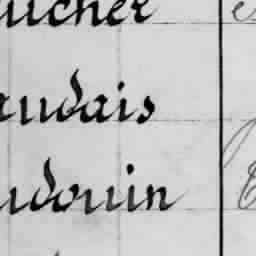 ucher
audais
udouin